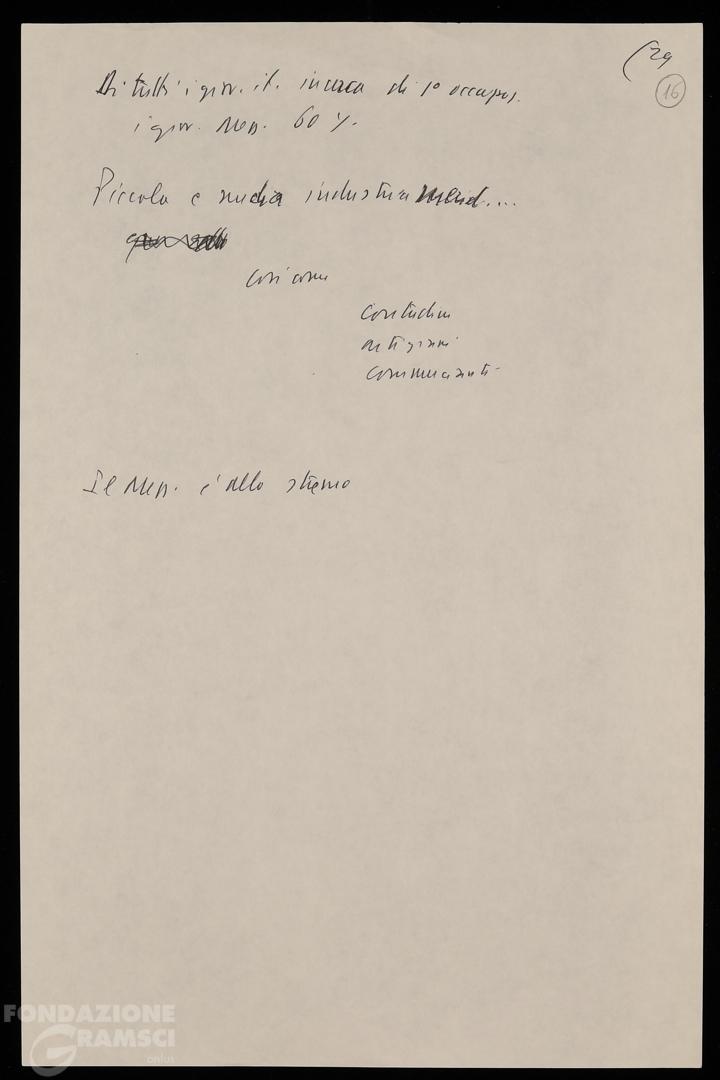 (29
16
Di tutti i giov. it. in cerca di 1° occupaz.
i giov. Mer. 60 %.
Piccola e media industria merid....
così come
contadini
artigiani
commercianti
Il Mezz. è allo stremo
FONDAZIONE
GRAMSCI
onlus